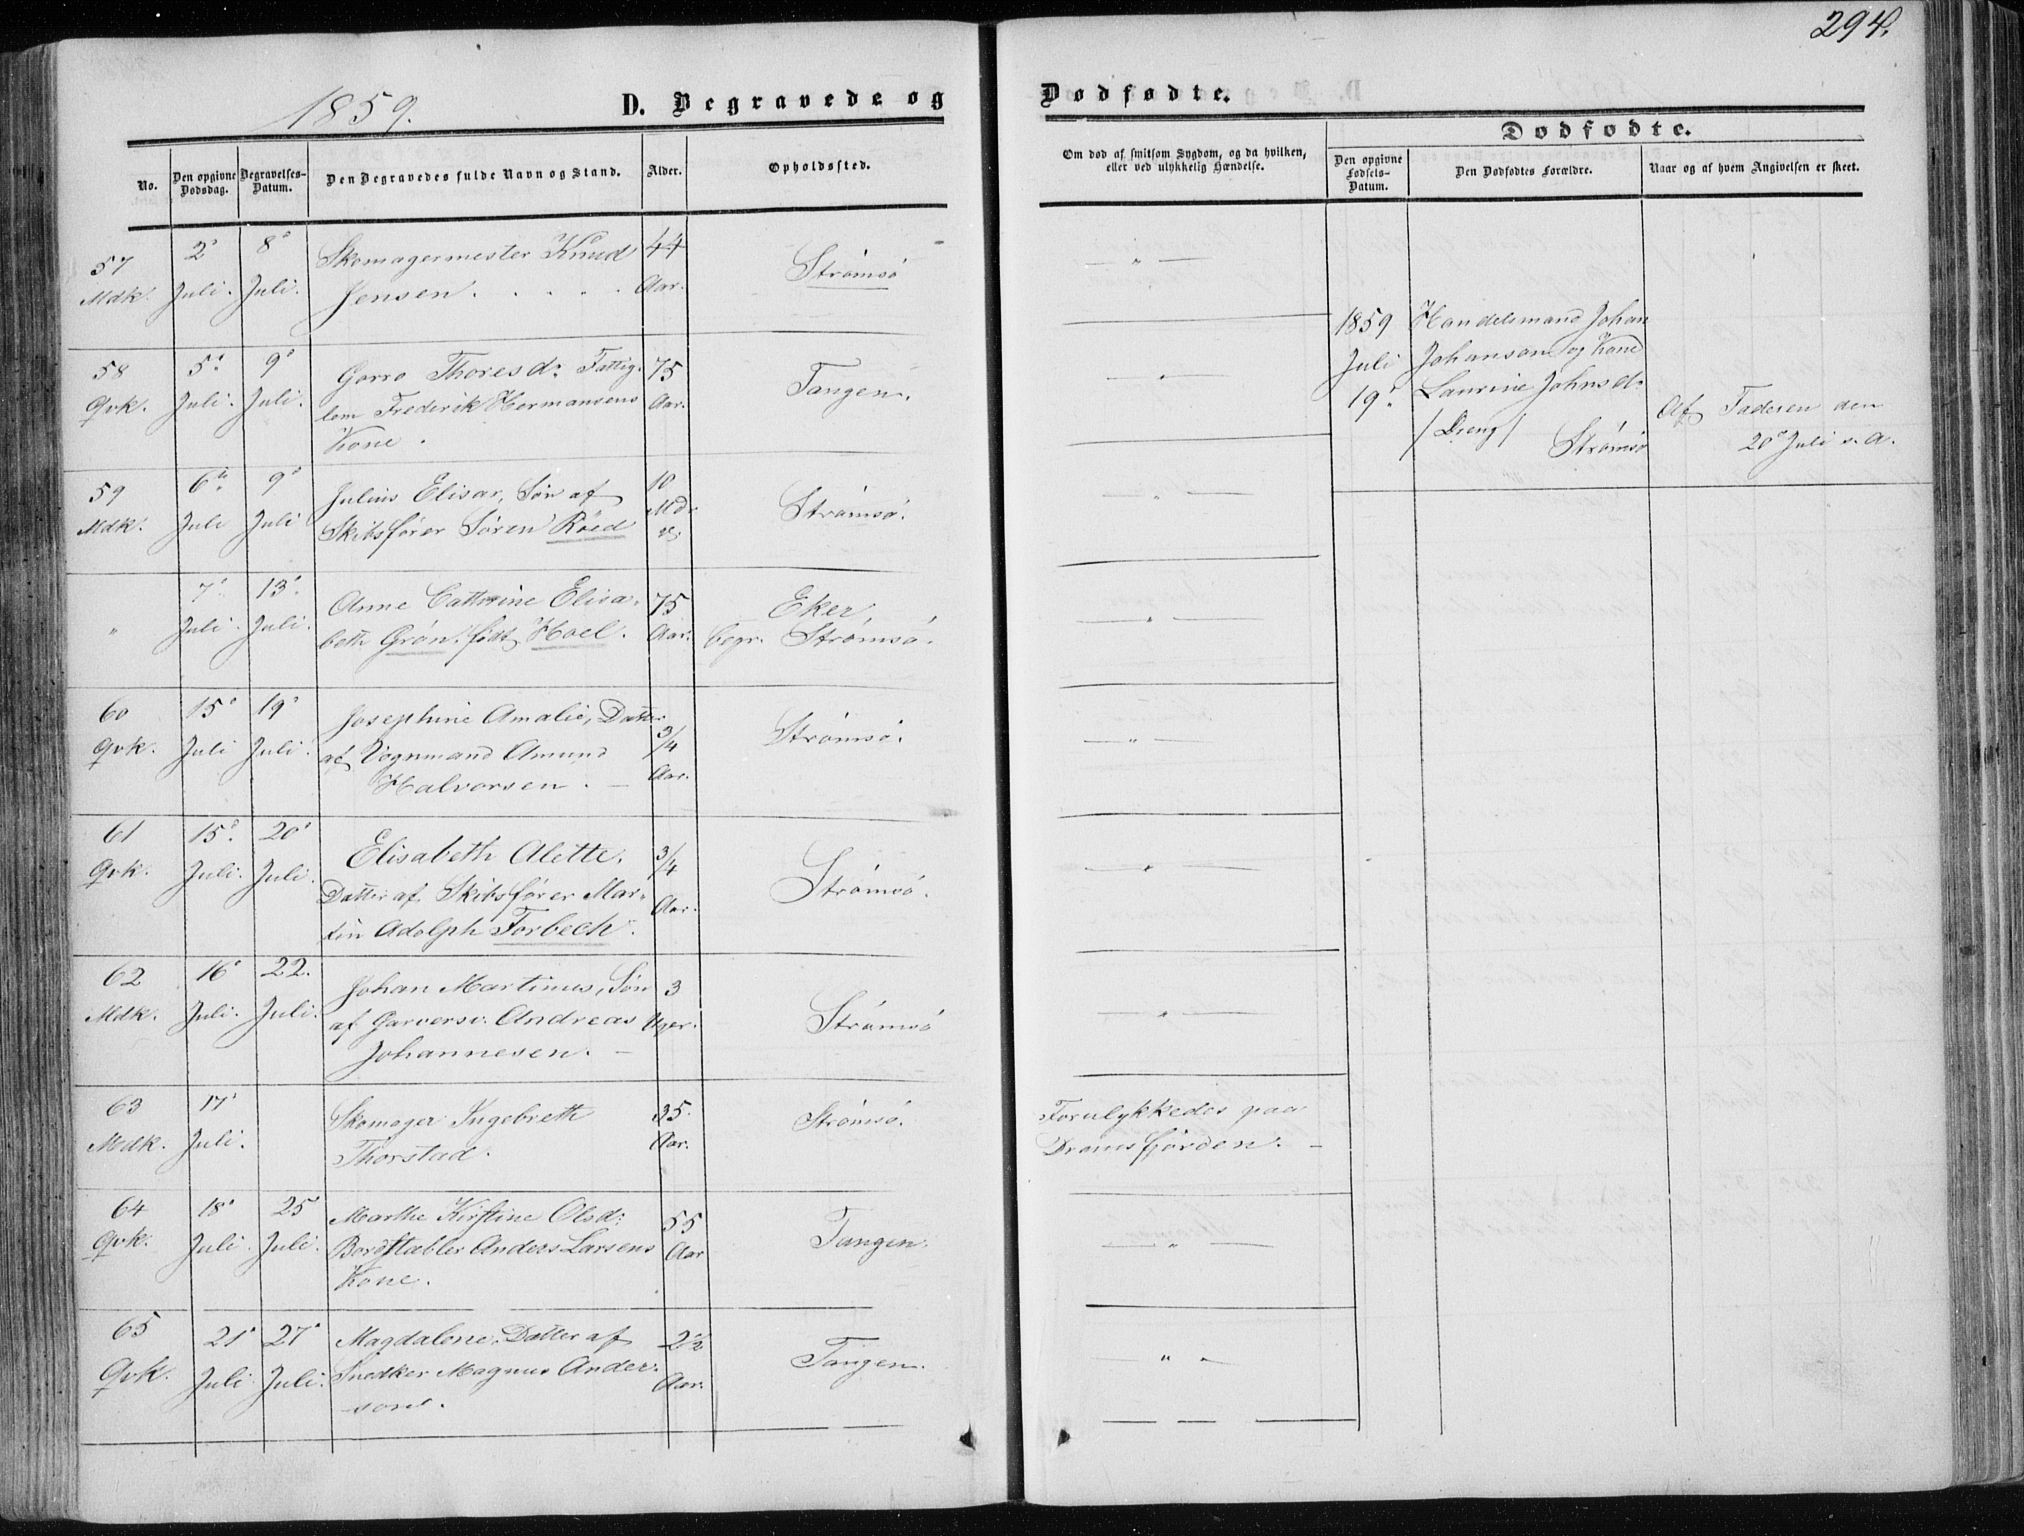 294.
1859.
D. Begravede og
Dødfødte.
No.
Den opgivne Dødsdag.
Begravelses-Datum.
Den Begravedes fulde Navn og Stand.
Alder.
Opholdssted.
Om død af smitsom Sygdom, og da hvilken,
eller ved ulykkelig Hændelse.
Dødfødte.
Den opgivne Fødsels-Datum.
Den Dødfødtes Forældre.
Naar og af hvem Angivelsen er skeet.
57 2' 8' Skomagermester Knud 44
Mdk. Juli. Juli. Jensen. . . . . Aar. Strømsø
— " —
58 5' 9' Thoresd: Fattig- 75
Qvk. Juli. Juli. lem Frederik Hermansens Aar. Tangen.
Kone.
— " —
59 6' 9' Julius Elisar, Søn af 10
Mdk. Juli Juli Skibsfører Søren Röed Md. Strømsø.
— " —
" 7' 13' Anne Cathrine Elisa- 75 Eker,
Juli. Juli. beth Grøn. født Hoel. Aar. begr. Strømsø.
— " —
60 15' 19' Josephine Amalie, Datter 3/4
Qvk. Juli Juli. af Vognmand Amund Aar. Strømsø.
Halvorsen. —
— " —
61 15' 20' Elisabeth Alette, 3/4
Qvk. Juli. Juli. Datter af Skibsfører Mar- Aar. Strømsø.
tin Adolph Forbech.
— " —
62 16' 22. Johan Martinus, Søn 3
Mdk. Juli. Juli. af Garversv. Andreas Uger. Strømsø
Johannesen. —
— " —
63 17' Skomager Ingebreth 35. Strømsø.
Mdk. Juli. Thorstad. Aar.
Forulykkedes paa
Dramsfjorden. —
64 18' 25' Marthe Kirstine Olsd: 55
Qvk. Juli. Juli. Bordstabler Anders Larsens Aar Tangen.
Kone.
— " —
65 21' 27' Magdalene, Datter af 2½
Qvk. Juli Juli. Snedker Magnus Ander- Aar. Tangen.
sons.
— " —
1859 Handelsmand Johan
Juli Johanson og Kone
19' Laurine Johnsd.
/Dreng/ Strømsø
Af Faderen den
20' Juli s. A.